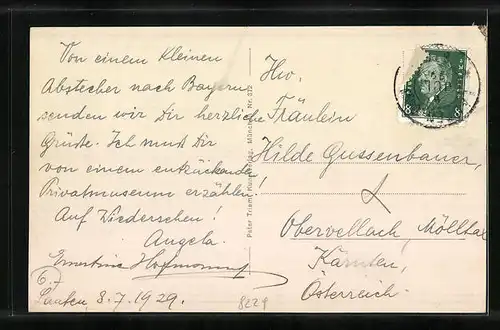 Von einem kleinen
Abstecher nach Bayern
senden wir Dir herzliche
Grüße. Ich muß Dir
von einem entzückenden
Privatmuseum erzählen!
Auf Wiedersehen!
Angela.
Hofmann
8.7.1929.
8229
Peter Triem, Kunstverlag, München. Nr. 372
Hw.
Fräulein
Hilde Gussenbauer,
Obervellach, Mölltal
Kärnten,
Österreich.
8 8